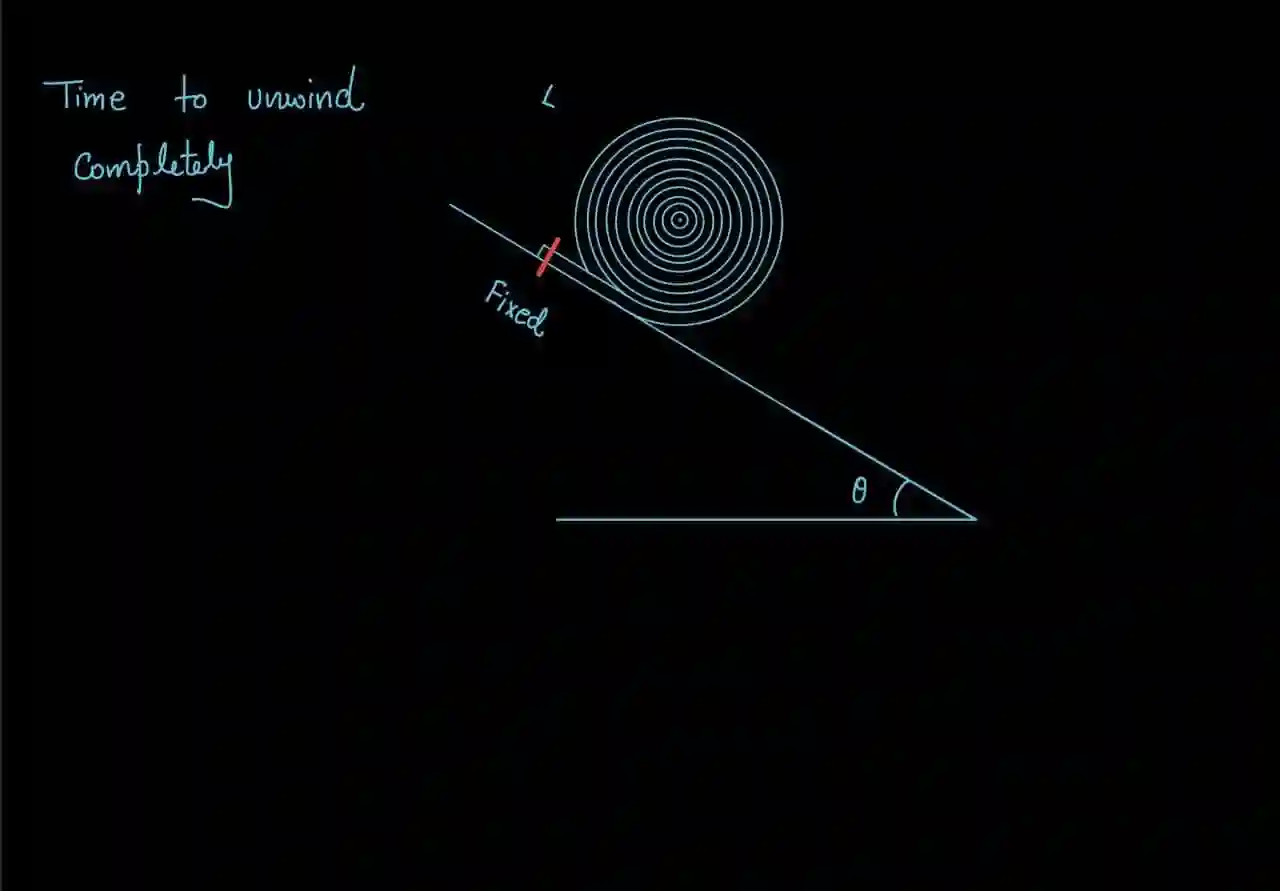 Time to unwind
completely
L
Fixed
θ